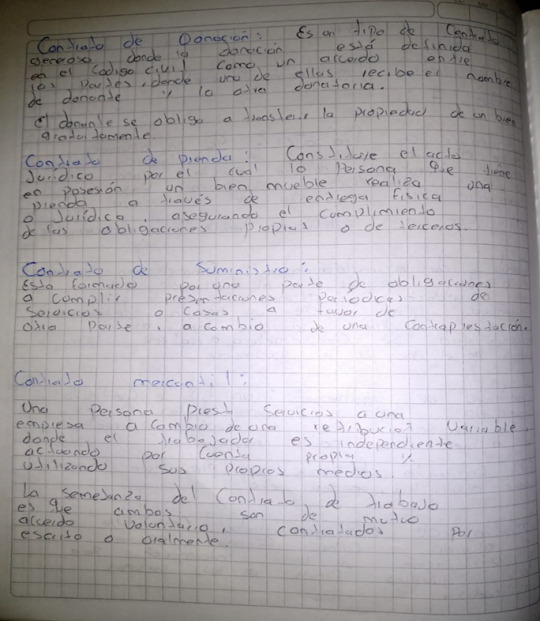 Contrato de Donación: Es un tipo de Contrato
generoso donde la donación está definida
en el Código civil como un acuerdo entre
las partes, donde una de ellas recibe el nombre
de donante y la otra donataria.
el donante se obliga a transferir la propiedad de un bien
gratuitamente.
Contrato de prenda: Constituye el acto
Jurídico por el cual la persona que tiene
en posesión un bien mueble realiza una
prenda a través de entrega física
o Jurídica, asegurando el cumplimiento
de las obligaciones propias o de terceros.
Contrato de Suministro:
Esta formado por una parte de obligaciones
a complir presentaciones periodicas de
servicios o cosas a favor de
otra parte, a cambio de una contraprestación.
Contrato mercantil:
Una persona prest servicios a una
empresa a cambio de una retribución variable
donde el trabajador es independiente
actuando por cuenta propia y
utilizando sus propios medios.
La semejanza del Contrato de trabajo
es que ambos son de mutuo
acuerdo voluntario, contratados por
escrito o oralmente.